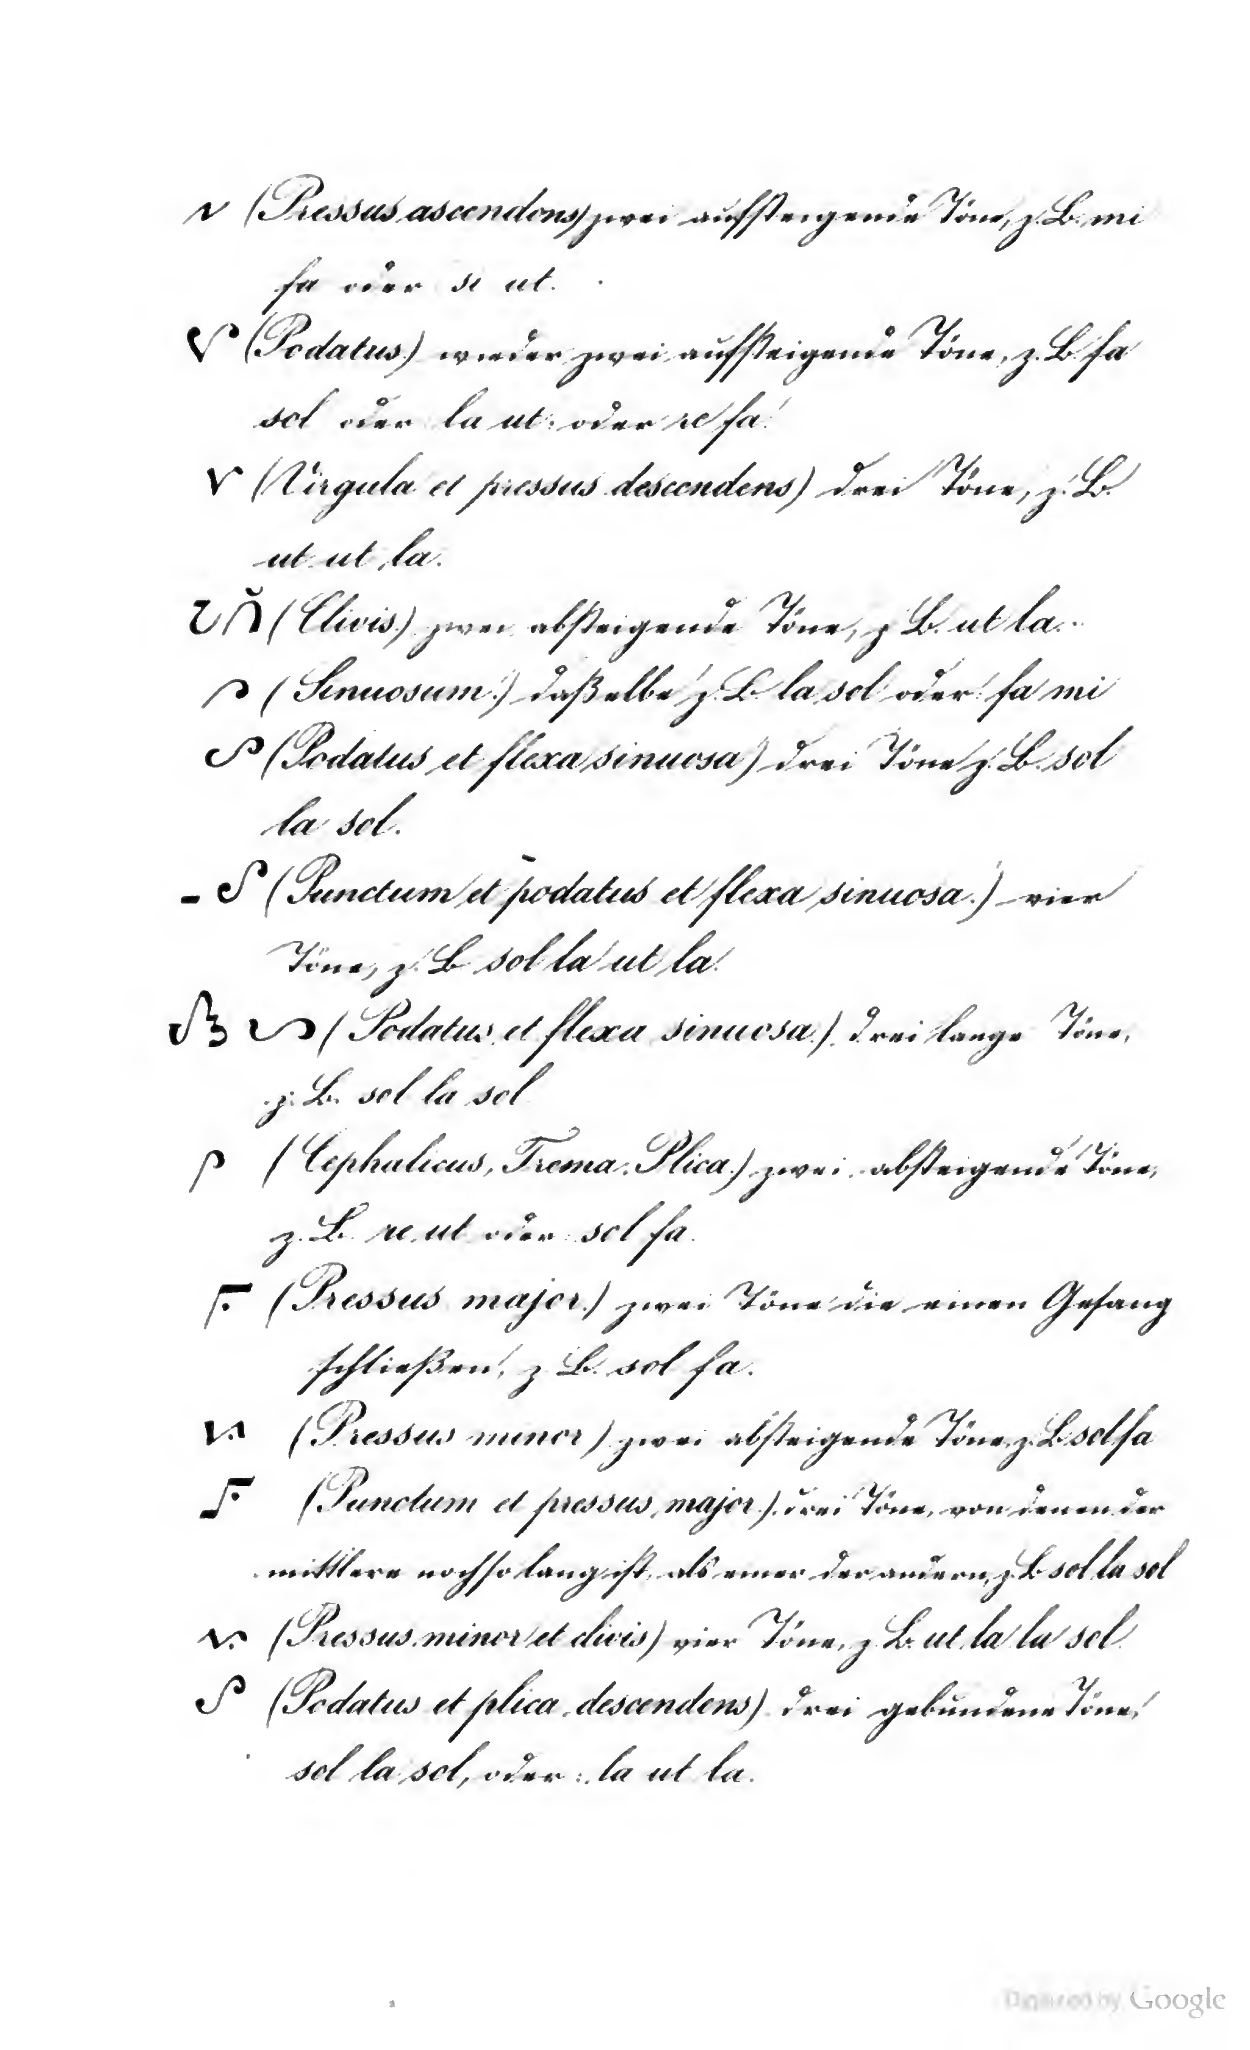 (Pressus ascendens) zwei aufsteigende Töne, z. B. mi
fa oder si ut.
(Podatus.) wieder zwei aufsteigende Töne, z. B. fa
sol oder la ut, oder re fa.
(Virgula et pressus descendens) drei Töne, z. B.
ut ut la.
(Clivis.) zwei absteigende Töne, z. B. ut la.
(Sinuosum.) daßelbe z. B. la sol oder fa mi
(Podatus et flexa sinuosa) drei Töne z. B. sol
la sol.
(Punctum et podatus et flexa sinuosa.) vier
Töne, z. B. sol la ut la.
(Podatus et flexa sinuosa.) drei lange Töne,
z. B. sol la sol
(Cephalicus, Trema. Plica.) zwei absteigende Töne,
z. B. re ut oder sol fa.
(Pressus major.) zwei Töne die einen Gesang
schließen, z. B. sol fa.
(Pressus minor) zwei absteigende Töne, z. B. sol fa
(Punctum et pressus major.) drei Töne, von denen der
mittlere noch so lang ist, als einer der andern, z. B. sol la sol
(Pressus minor et clivis) vier Töne, z. B. ut la la sol
(Podatus et plica descendens) drei gebundene Töne,
sol la sol, oder: la ut la.
Digitized by Google